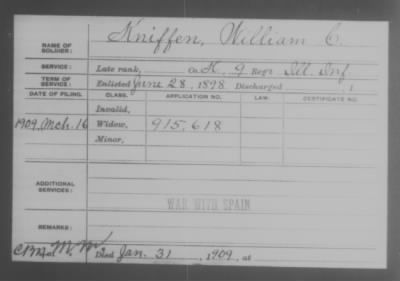 NAME OF SOLDIER: Kniffen, William C.
SERVICE: Late rank, Co. H, 9 Reg't Ill. Inf.
TERM OF SERVICE: Enlisted June 28, 1898 Discharged , 1
DATE OF FILING. CLASS. APPLICATION NO. LAW. CERTIFICATE NO.
Invalid,
1909, Mch. 16 Widow, 915,618
Minor,
ADDITIONAL SERVICES:
WAR WITH SPAIN
REMARKS:
Died Jan. 31, 1909, at